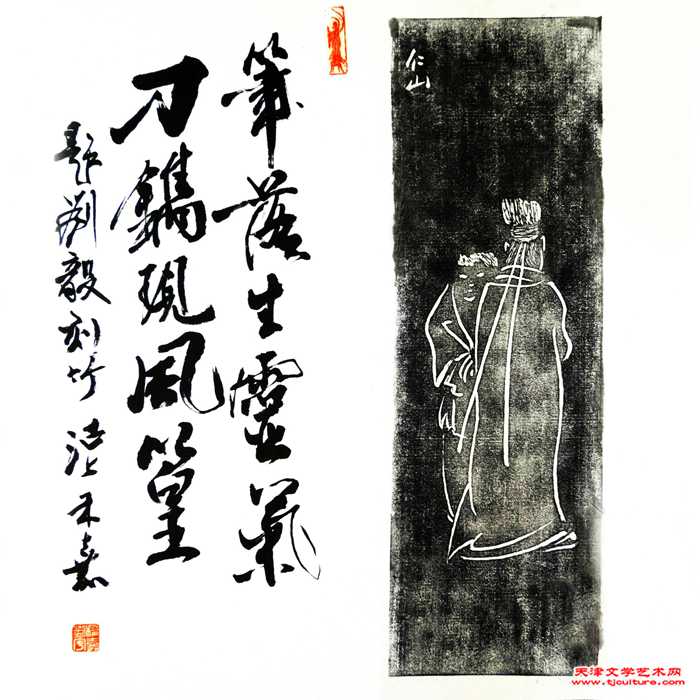 筆落生靈氣
刀鐫現風篁
題劉毅刻竹 沽上
仁山
天津文学艺术网
www.tjculture.com